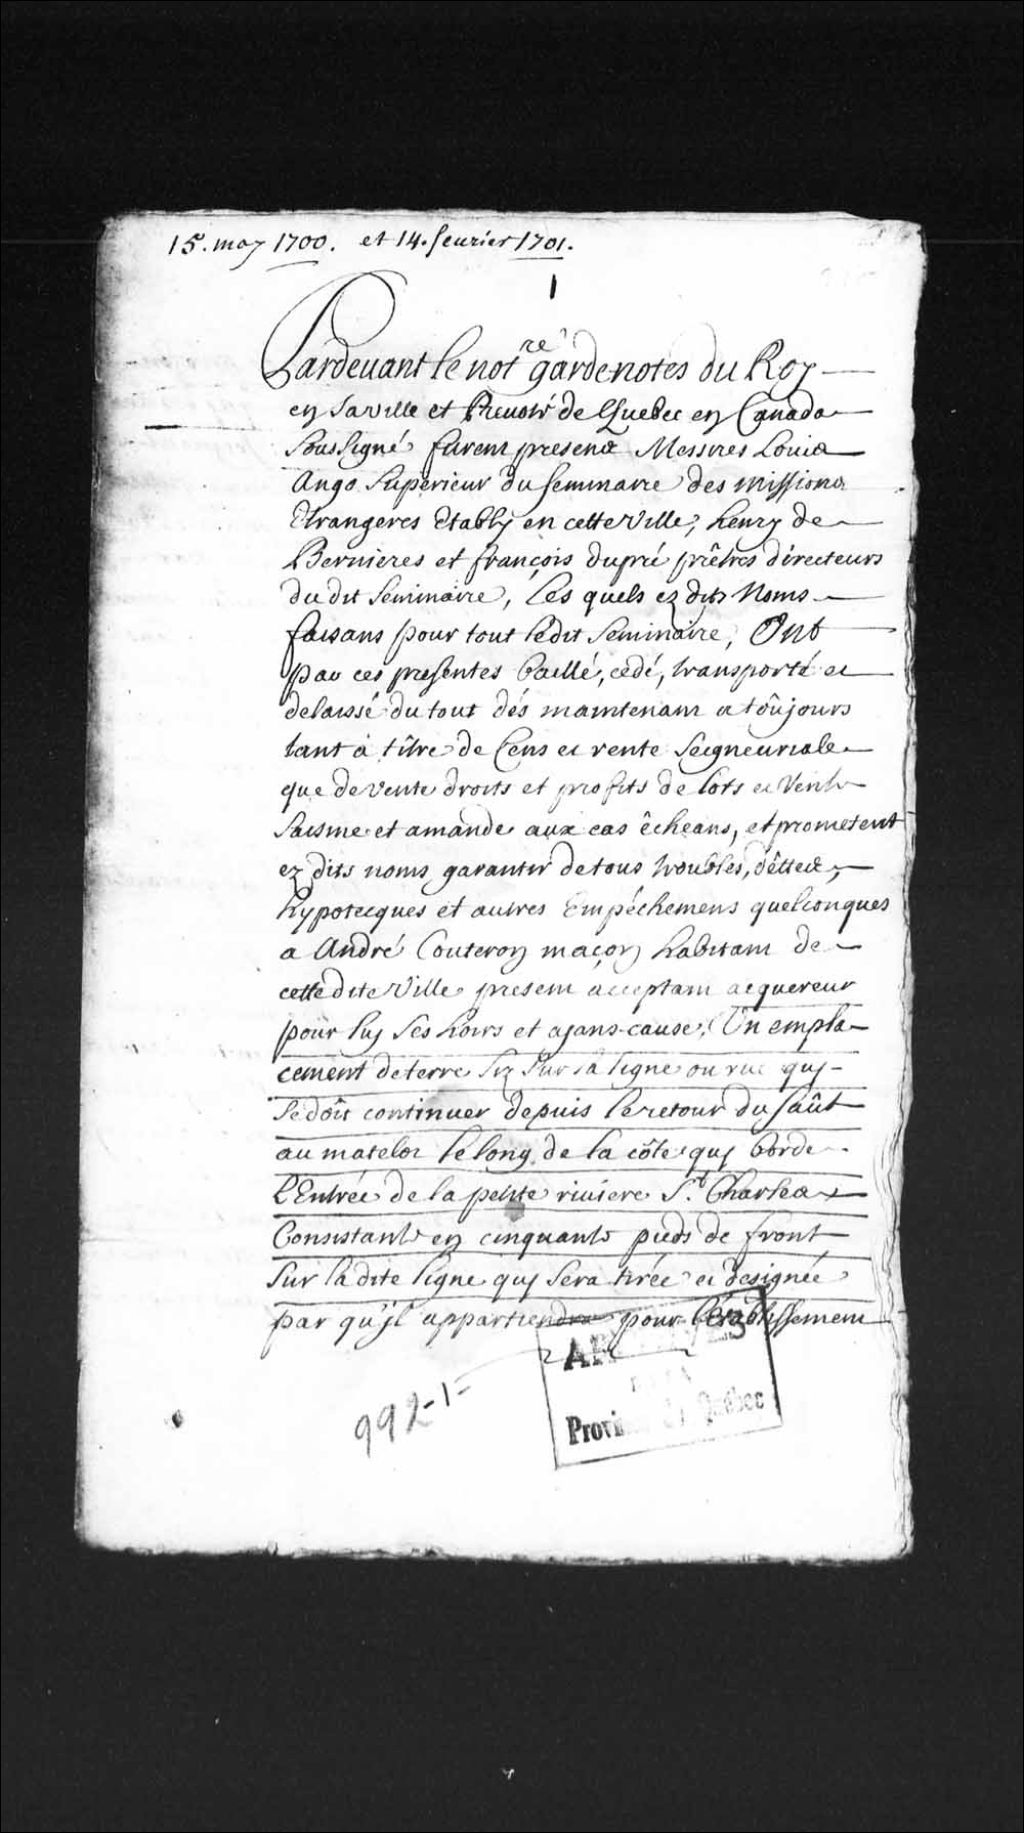 15. may 1700. et 14. feurier 1701.
1
Pardeuant le not.re gardenotes du Roy
en sa ville et Preuoté de Quebec en Canada
soussigné furent presens Messires Louis
Ango Superieur du seminaire des missions
Etrangeres Etably en cette ville, henry de
Bernieres et françois dupré prêtres directeurs
du dit Seminaire, Les quels ez dits Noms
faisans pour tout ledit Seminaire, Ont
par ces presentes baillé, cedé, transporté et
delaissé du tout dés maintenant a toûjours
tant à tître de Cens et rente Seigneuriale
que de vente droits et profits de lots et vente
saisine et amande aux cas êcheans, et prometent
ez dits noms garantir de tous troubles, dêttes,
hypotecques et autres Empéchemens quelconques
a André Couteron maçon habitant de
cette dite Ville present acceptant acquereur
pour luy Ses hoirs et ajans cause, Un empla-
cement de terre siz sur la ligne ou rue quy
se doit continuer depuis le retour du saût
au matelot le long de la côte quy borde
l'Entrée de la petite riuiere S.t Charles
Consistant en cinquante pieds de front
sur la dite ligne quy sera tirée et designée
par qu'jl appartiendra pour l'établissement
992-1-
Province de Québec